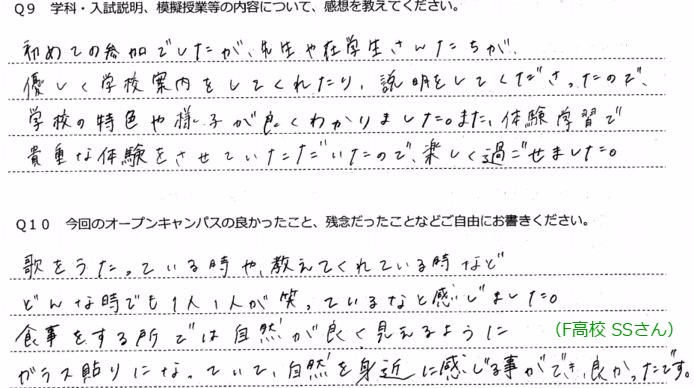 Q9 学科・入試説明、模擬授業等の内容について、感想を教えてください。
初めての参加でしたが、先生や在学生さんたちが、
優しく学校案内をしてくれたり、説明をしてくださったので、
学校の特色や様子が良くわかりました。また、体験学習で
貴重な体験をさせていただいたので、楽しく過ごせました。
Q10 今回のオープンキャンパスの良かったこと、残念だったことなどご自由にお書きください。
歌をうたっている時や、教えてくれている時など
どんな時でも1人1人が笑っているなと感じました。
食事をする所では自然が良く見えるように
(F高校 SSさん)
ガラス貼りになっていて、自然を身近に感じる事ができ、良かったです。